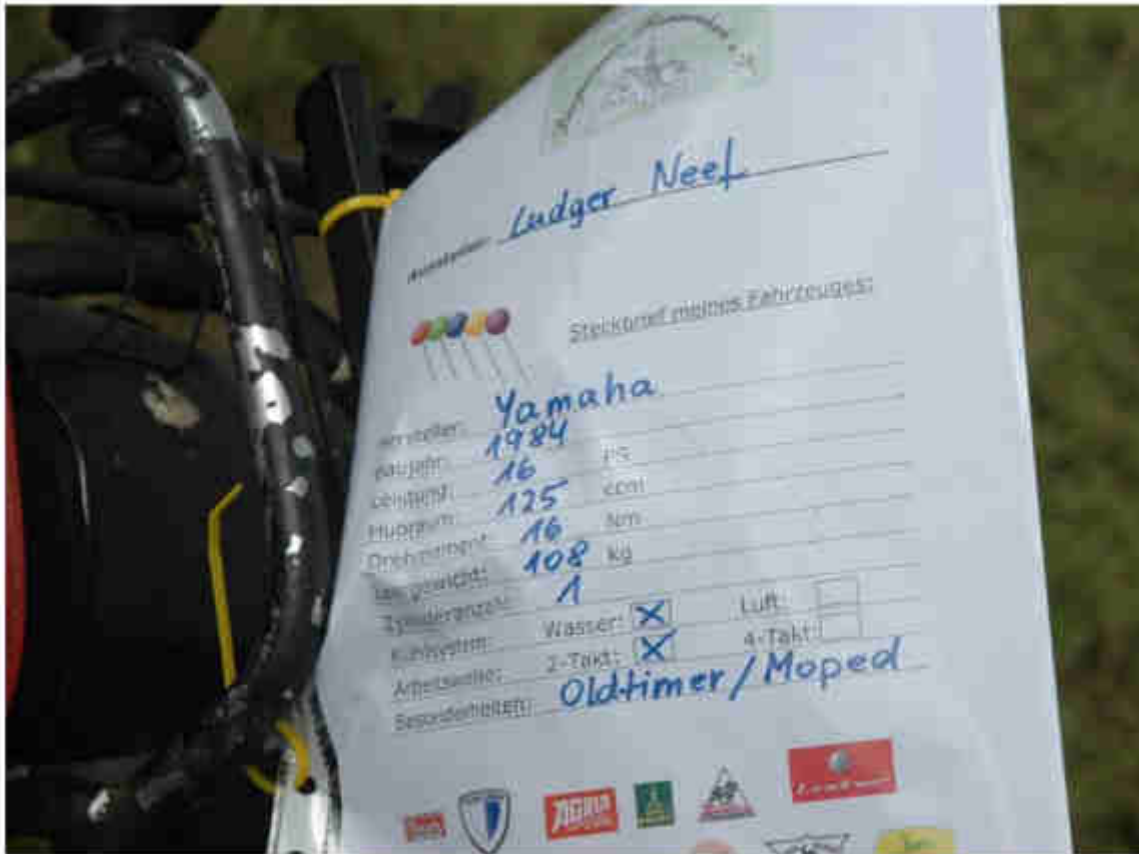 Aussteller: Ludger Neef
Steckbrief meines Fahrzeuges:
Hersteller: Yamaha
Baujahr: 1984
Leistung: 16 PS
Hubraum: 125 ccm
Drehmoment: 16 Nm
108 kg
Zylinderanzahl: 1
Kühlsystem: Wasser: X Luft:
Arbeitsweise: 2-Takt: X 4-Takt:
Besonderheiten: Oldtimer/Moped
AGRIA